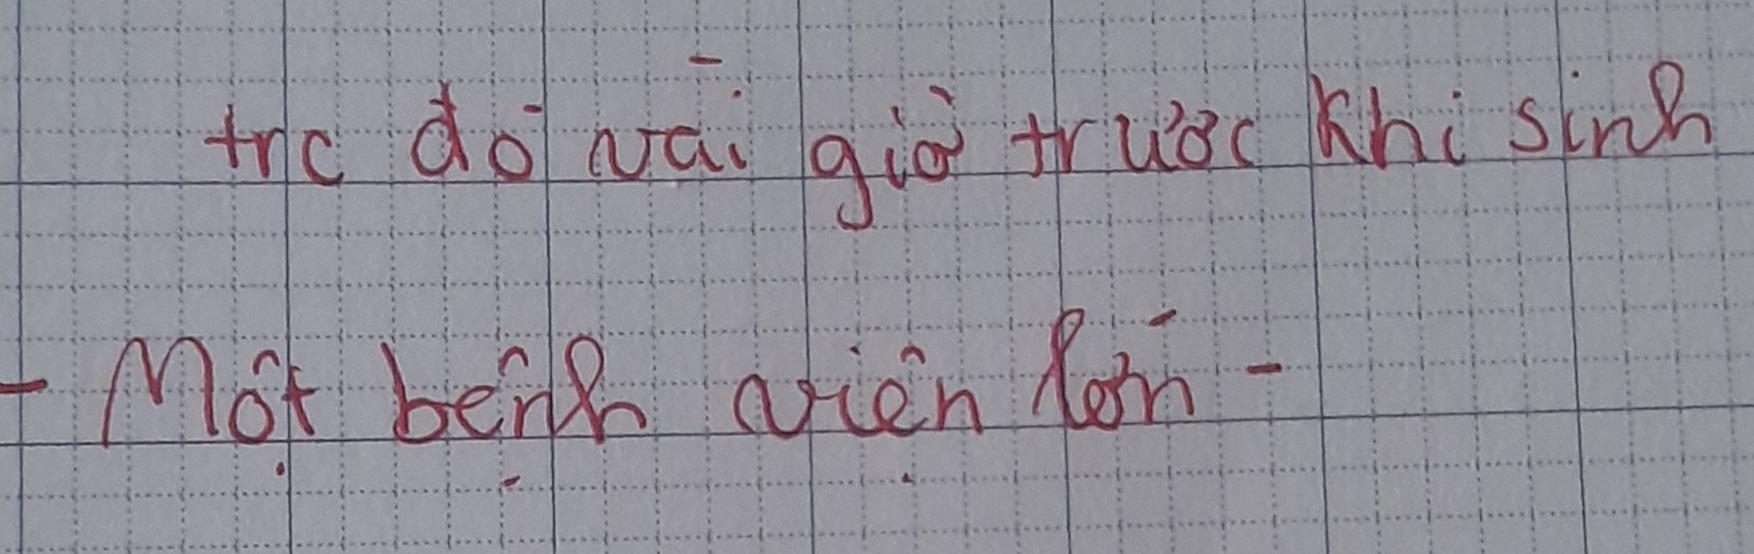 trc đó vài giờ trước khi sinh
- Một bệnh viện lớn -